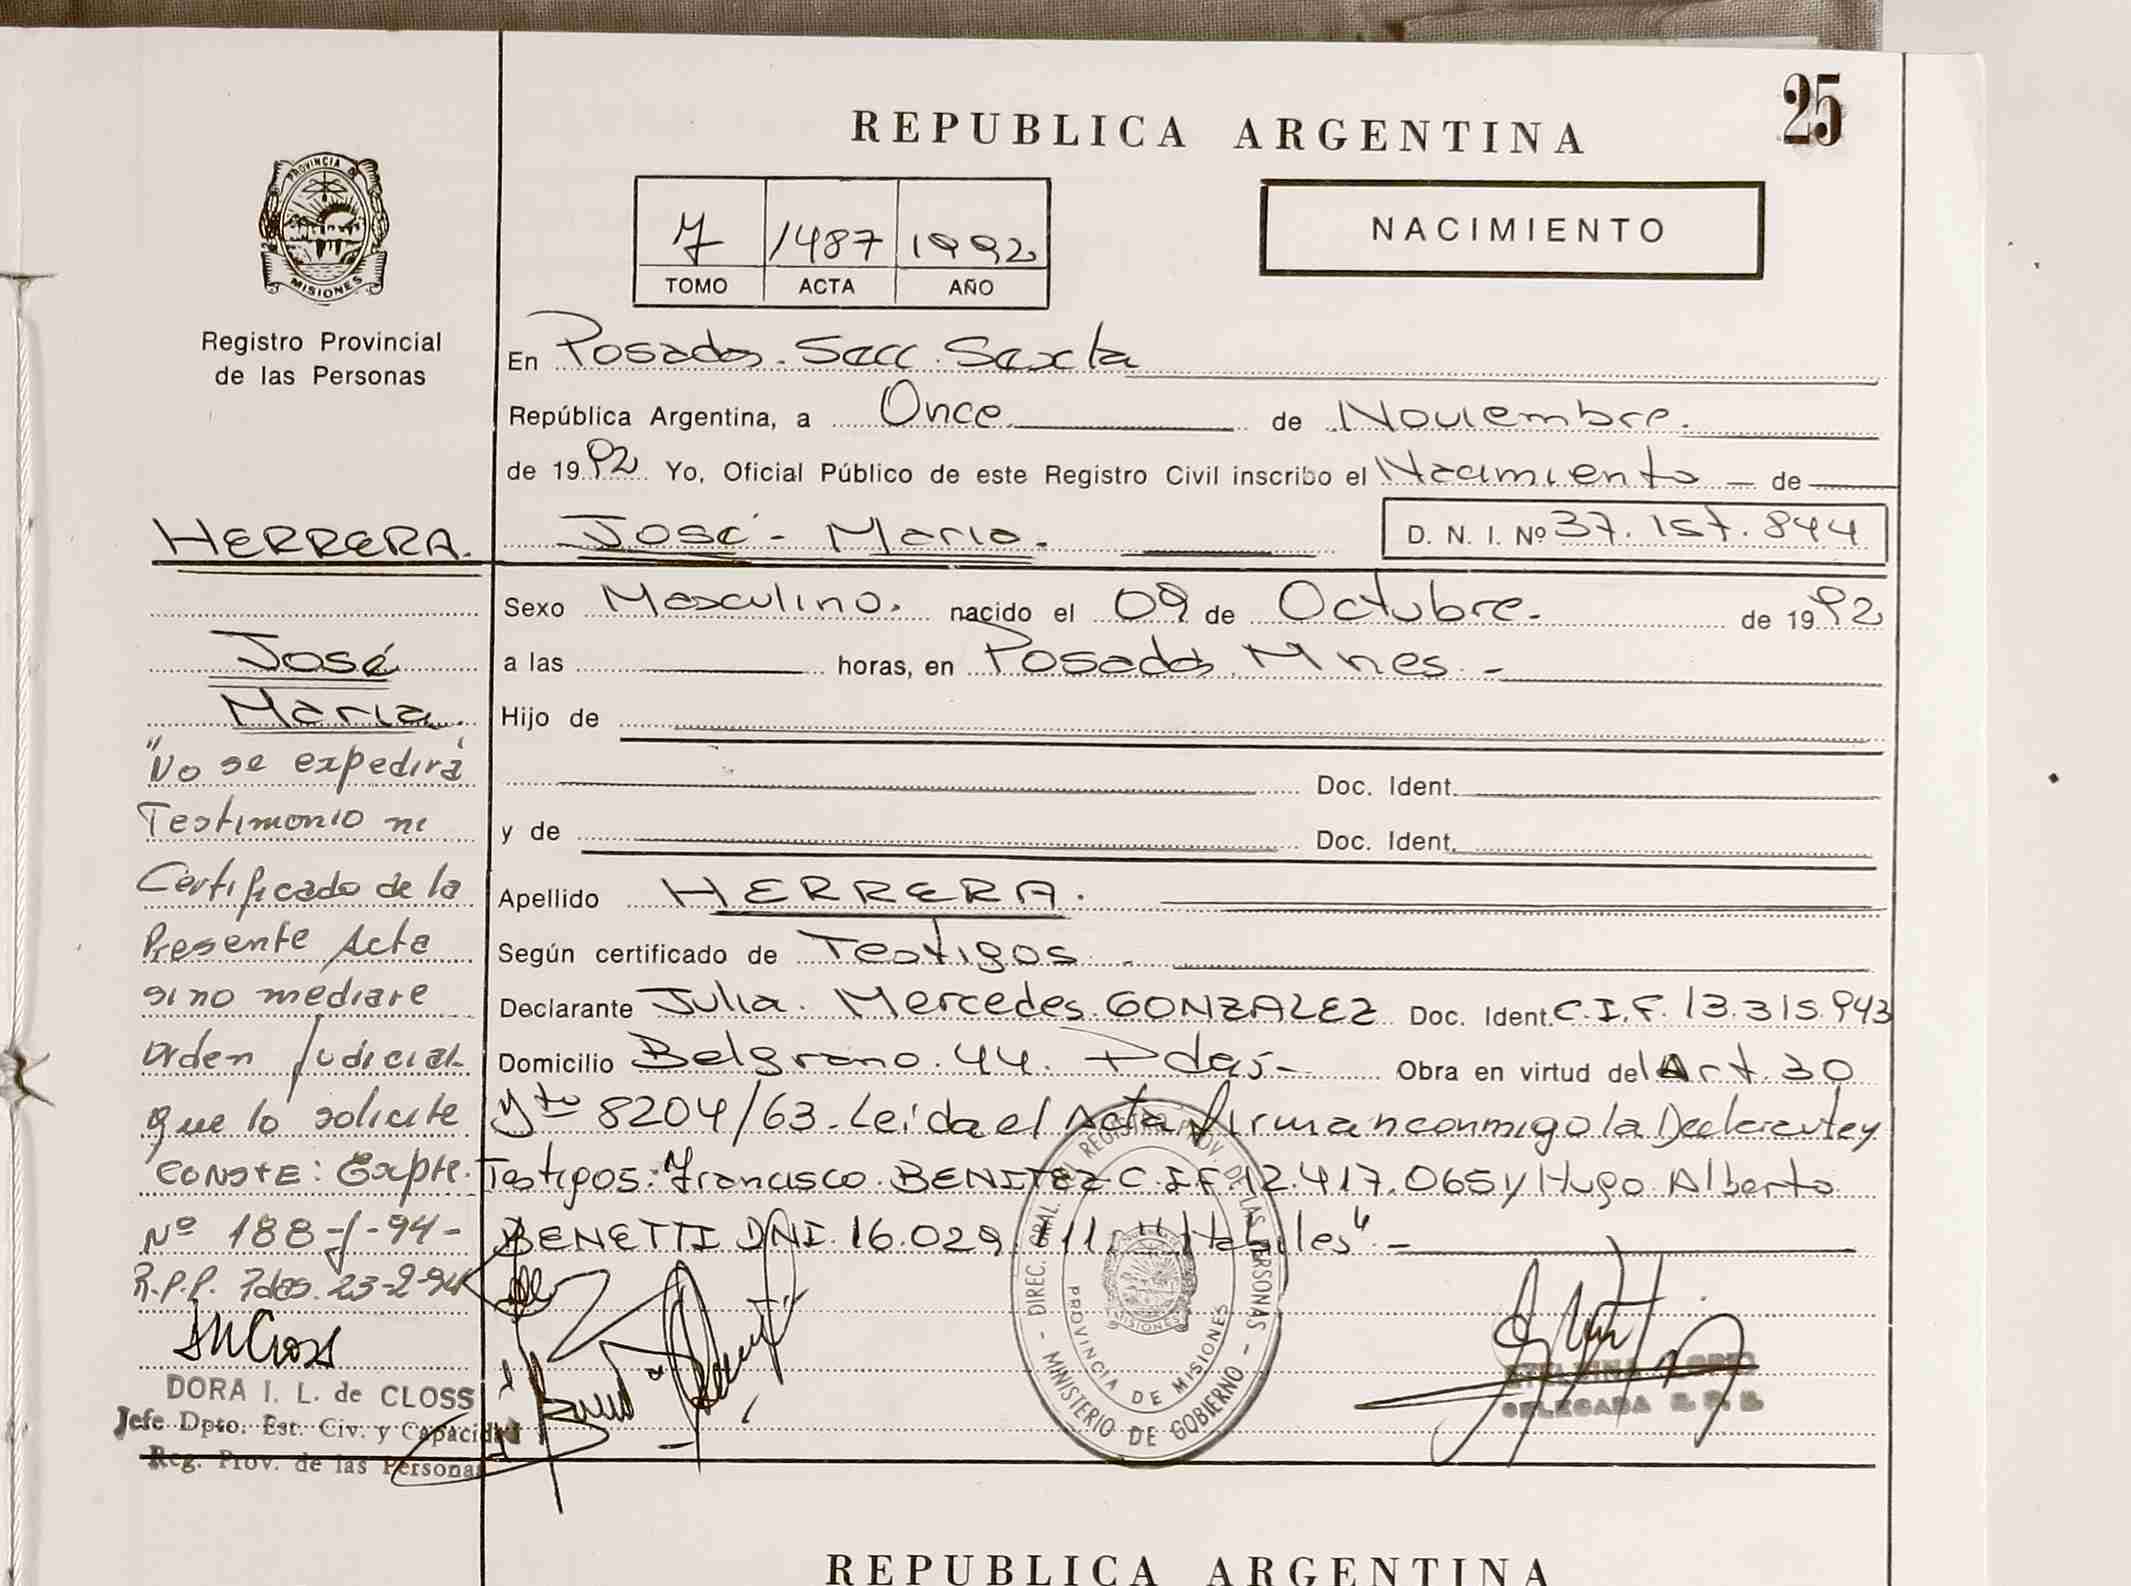 25
REPUBLICA ARGENTINA
NACIMIENTO
1487 1992
TOMO ACTA AÑO
PROVINCIA DE
MISIONES
Registro Provincial
de las Personas
En Posadas. Secc. Sexta
República Argentina, a Once de Noviembre.
de 1992 Yo, Oficial Público de este Registro Civil inscribo el Nacimiento de
José - María. D. N. I. Nº 37.157.844
Sexo Masculino. nacido el 09 de Octubre. de 1992
a las horas, en Posadas. Mnes. -
Hijo de
Doc. Ident.
y de Doc. Ident.
Apellido HERRERA.
Según certificado de Testigos. -
Declarante Julia. Mercedes. GONZALEZ Doc. Ident. C.I.F. 13.315.943
Domicilio Belgrano. 44. Pdas- Obra en virtud del Art. 30
8204/63. Leida el Acta, firman conmigo la Declarante y
Testigos: Francisco. BENITEZ C.I.F. 12.417.065 y Hugo Alberto
BENETTI DNI. 16.029.111, "Habiles" -
HERRERA.
José
María.
"No se expedirá
Testimonio ni
Certificado de la
Presente Acta
si no mediare
Orden Judicial
que lo solicite
CONSTE: Expte.
Nº 188-J-94-
R.P.P. Pdas. 23-2-94
DORA I. L. de CLOSS
Jefe Dpto. Est. Civ. y Capacidad
Reg. Prov. de las Personas
DIREC. GRAL. DEL REGISTRO PROV. DE LAS PERSONAS
MINISTERIO DE GOBIERNO
PROVINCIA DE MISIONES
MISIONES
DELEGADA
REPUBLICA ARGENTINA